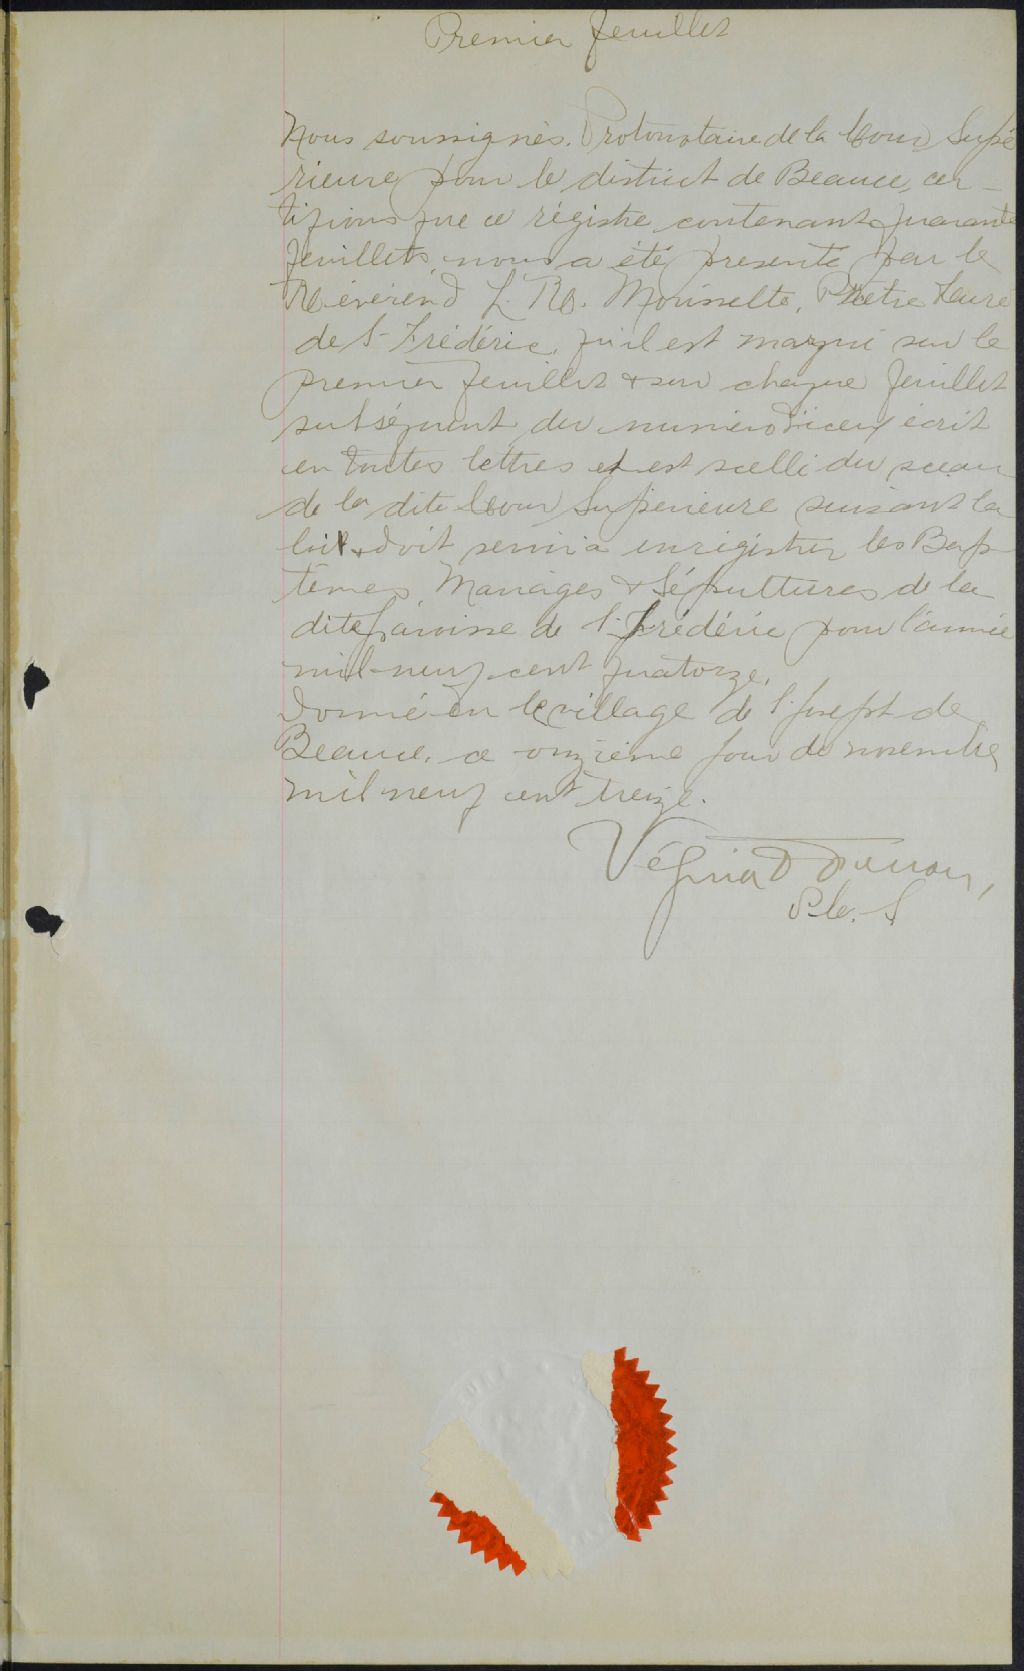 Premier feuillet
Nous soussignés, Protonotaire de la Cour Supé
rieure pour le district de Beauce, cer-
tifions que ce régistre contenant quarante
feuillets nous a été presenté par le
Révérend L. Morissette, Prêtre Curé
de St Frédéric, qu'il est marqué sur le
premier feuillet & sur chaque feuillet
subséquent du numéro d'iceux écrit
en toutes lettres et est scellé du sceau
de la dite Cour Supérieure suivant la
loi & doit servir à enrégistrer les Bap-
têmes Mariages & Sépultures de la
dite paroisse de St Frédéric pour l'année
mil-neuf-cent quatorze.
Donné en le village de St Joseph de
Beauce, ce onzième jour de novembre
mil neuf cent treize.
Vézina
P.C.S.